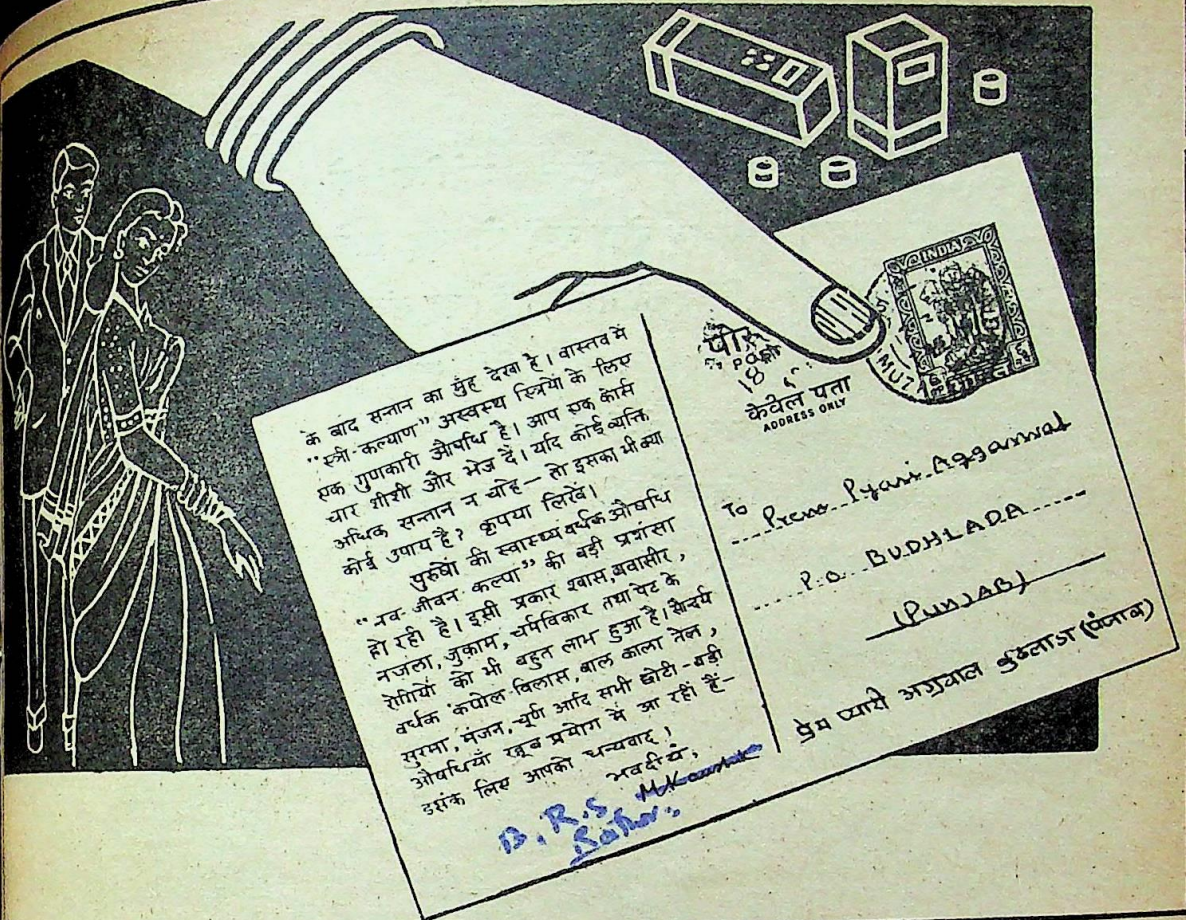 के बाद सन्तान का मुंह देखा है। वास्तव में
"स्त्री-कल्याण" अस्वस्थ स्त्रियों के लिए
एक गुणकारी औषधि है। आप एक कोर्स
चार शीशी और भेज दें। यदि कोई व्यक्ति
अधिक सन्तान न चाहे — तो इसका भी क्या
कोई उपाय है? कृपया लिखें।
पुरुषों की स्वास्थ्य वर्धक औषधि
"नव-जीवन कल्पा" की बड़ी प्रशंसा
हो रही है। इसी प्रकार श्वास, बवासीर,
नजला, जुकाम, चर्मविकार तथा पेट के
रोगियों को भी बहुत लाभ हुआ है। सौन्दर्य
वर्धक कपोल-विलास, बाल काला तेल,
सुरमा, मंजन, चूर्ण आदि सभी छोटी-बड़ी
औषधियाँ खूब प्रयोग में आ रही हैं—
इसके लिए आपको धन्यवाद,
भवदीय,
M Kaushik
B. R. S
पोस्ट
18
केवल पता
ADDRESS ONLY
INDIA
भारत
MUZ
To Prem Pyari Aggarwal
P.O. BUDHLADA
(PUNJAB)
प्रेम प्यारी अग्रवाल बुढलाडा (पंजाब)